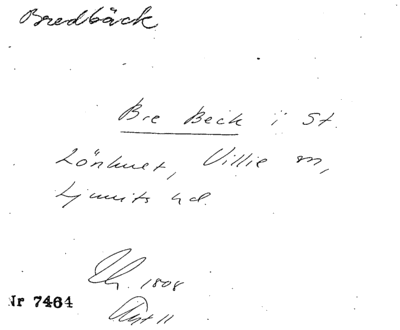 Bredbäck
Bre Beck i St.
Lönhult, Villie sn,
Ljunits hd.
1808
Nr 7464
Akt 11